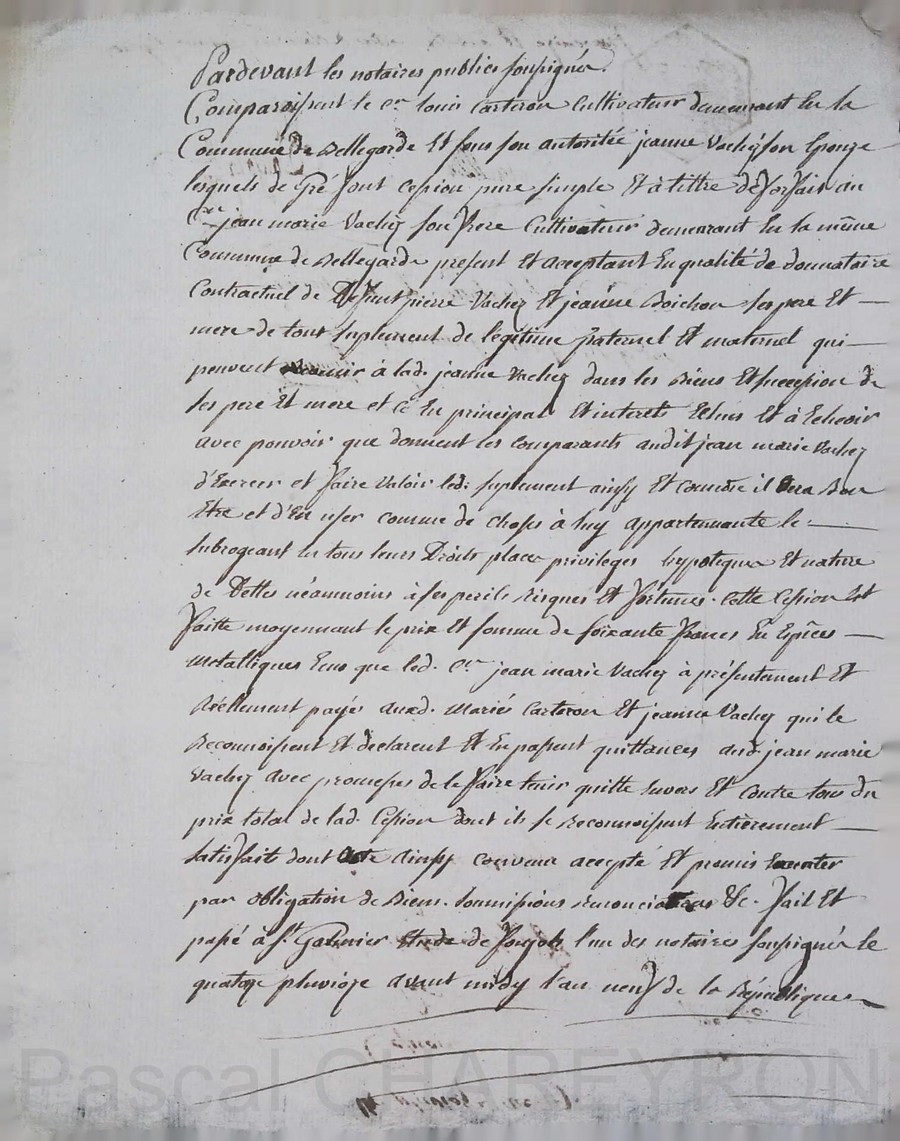 Pardevant les notaires publics soussignés
Comparoissent le cn louis carteron Cultivateur demeurant En la
Commune de Bellegarde Et sous son autorité jeanne Vachez son Epouze
lesquels de Gré font cession pure simple Et à tittre de forfait au
Cen jean marie Vachez son frere Cultivateur demeurant En la même
Commune de Bellegarde présent Et acceptant En qualité de donnataire
Contractuel de Deffunt pierre Vachez Et jeanne Boichon ses pere Et
mere de tout suplement de légitime paternel Et maternel qui
peuvent à lad. jeanne Vachez dans les Biens Et succession de
ses pere Et mere et ce En principal Et interets Echus Et à Echeoir
avec pouvoir que donnent les comparants audit jean marie Vachez
d'Exercer et faire Valoir led. suplement ainsy Et comme il Vera Bon
Etre et d'En user comme de choses à luy appartenante le
subrogeant En tous leurs Droits places privileges hypotèques Et nature
de Dettes néanmoins à ses perils risques Et fortunes. Cette Cession Est
faitte moyennant le prix Et somme de soixante francs En Espèces
metalliques Ecus que led. cn jean marie Vachez à présentement Et
Réellement payés auxd. mariés Carteron Et jeanne Vachez qui le
Reconnoissent Et déclarent Et En passent quittances aud. jean marie
Vachez avec promesses de le faire tenir quitte Envers Et contre tous du
prix total de lad. Cession dont ils se reconnoissent Entièrement
satisfaits dont Acte Ainsy convenu accepté Et promis Executer
par obligation de Biens. soumissions renonciations &c. fait Et
passé à St. Galmier Etude de l'un des notaires soussignés le
quatoze pluvioze avant midy l'an neuf de la République
Pascal CHAREYRON